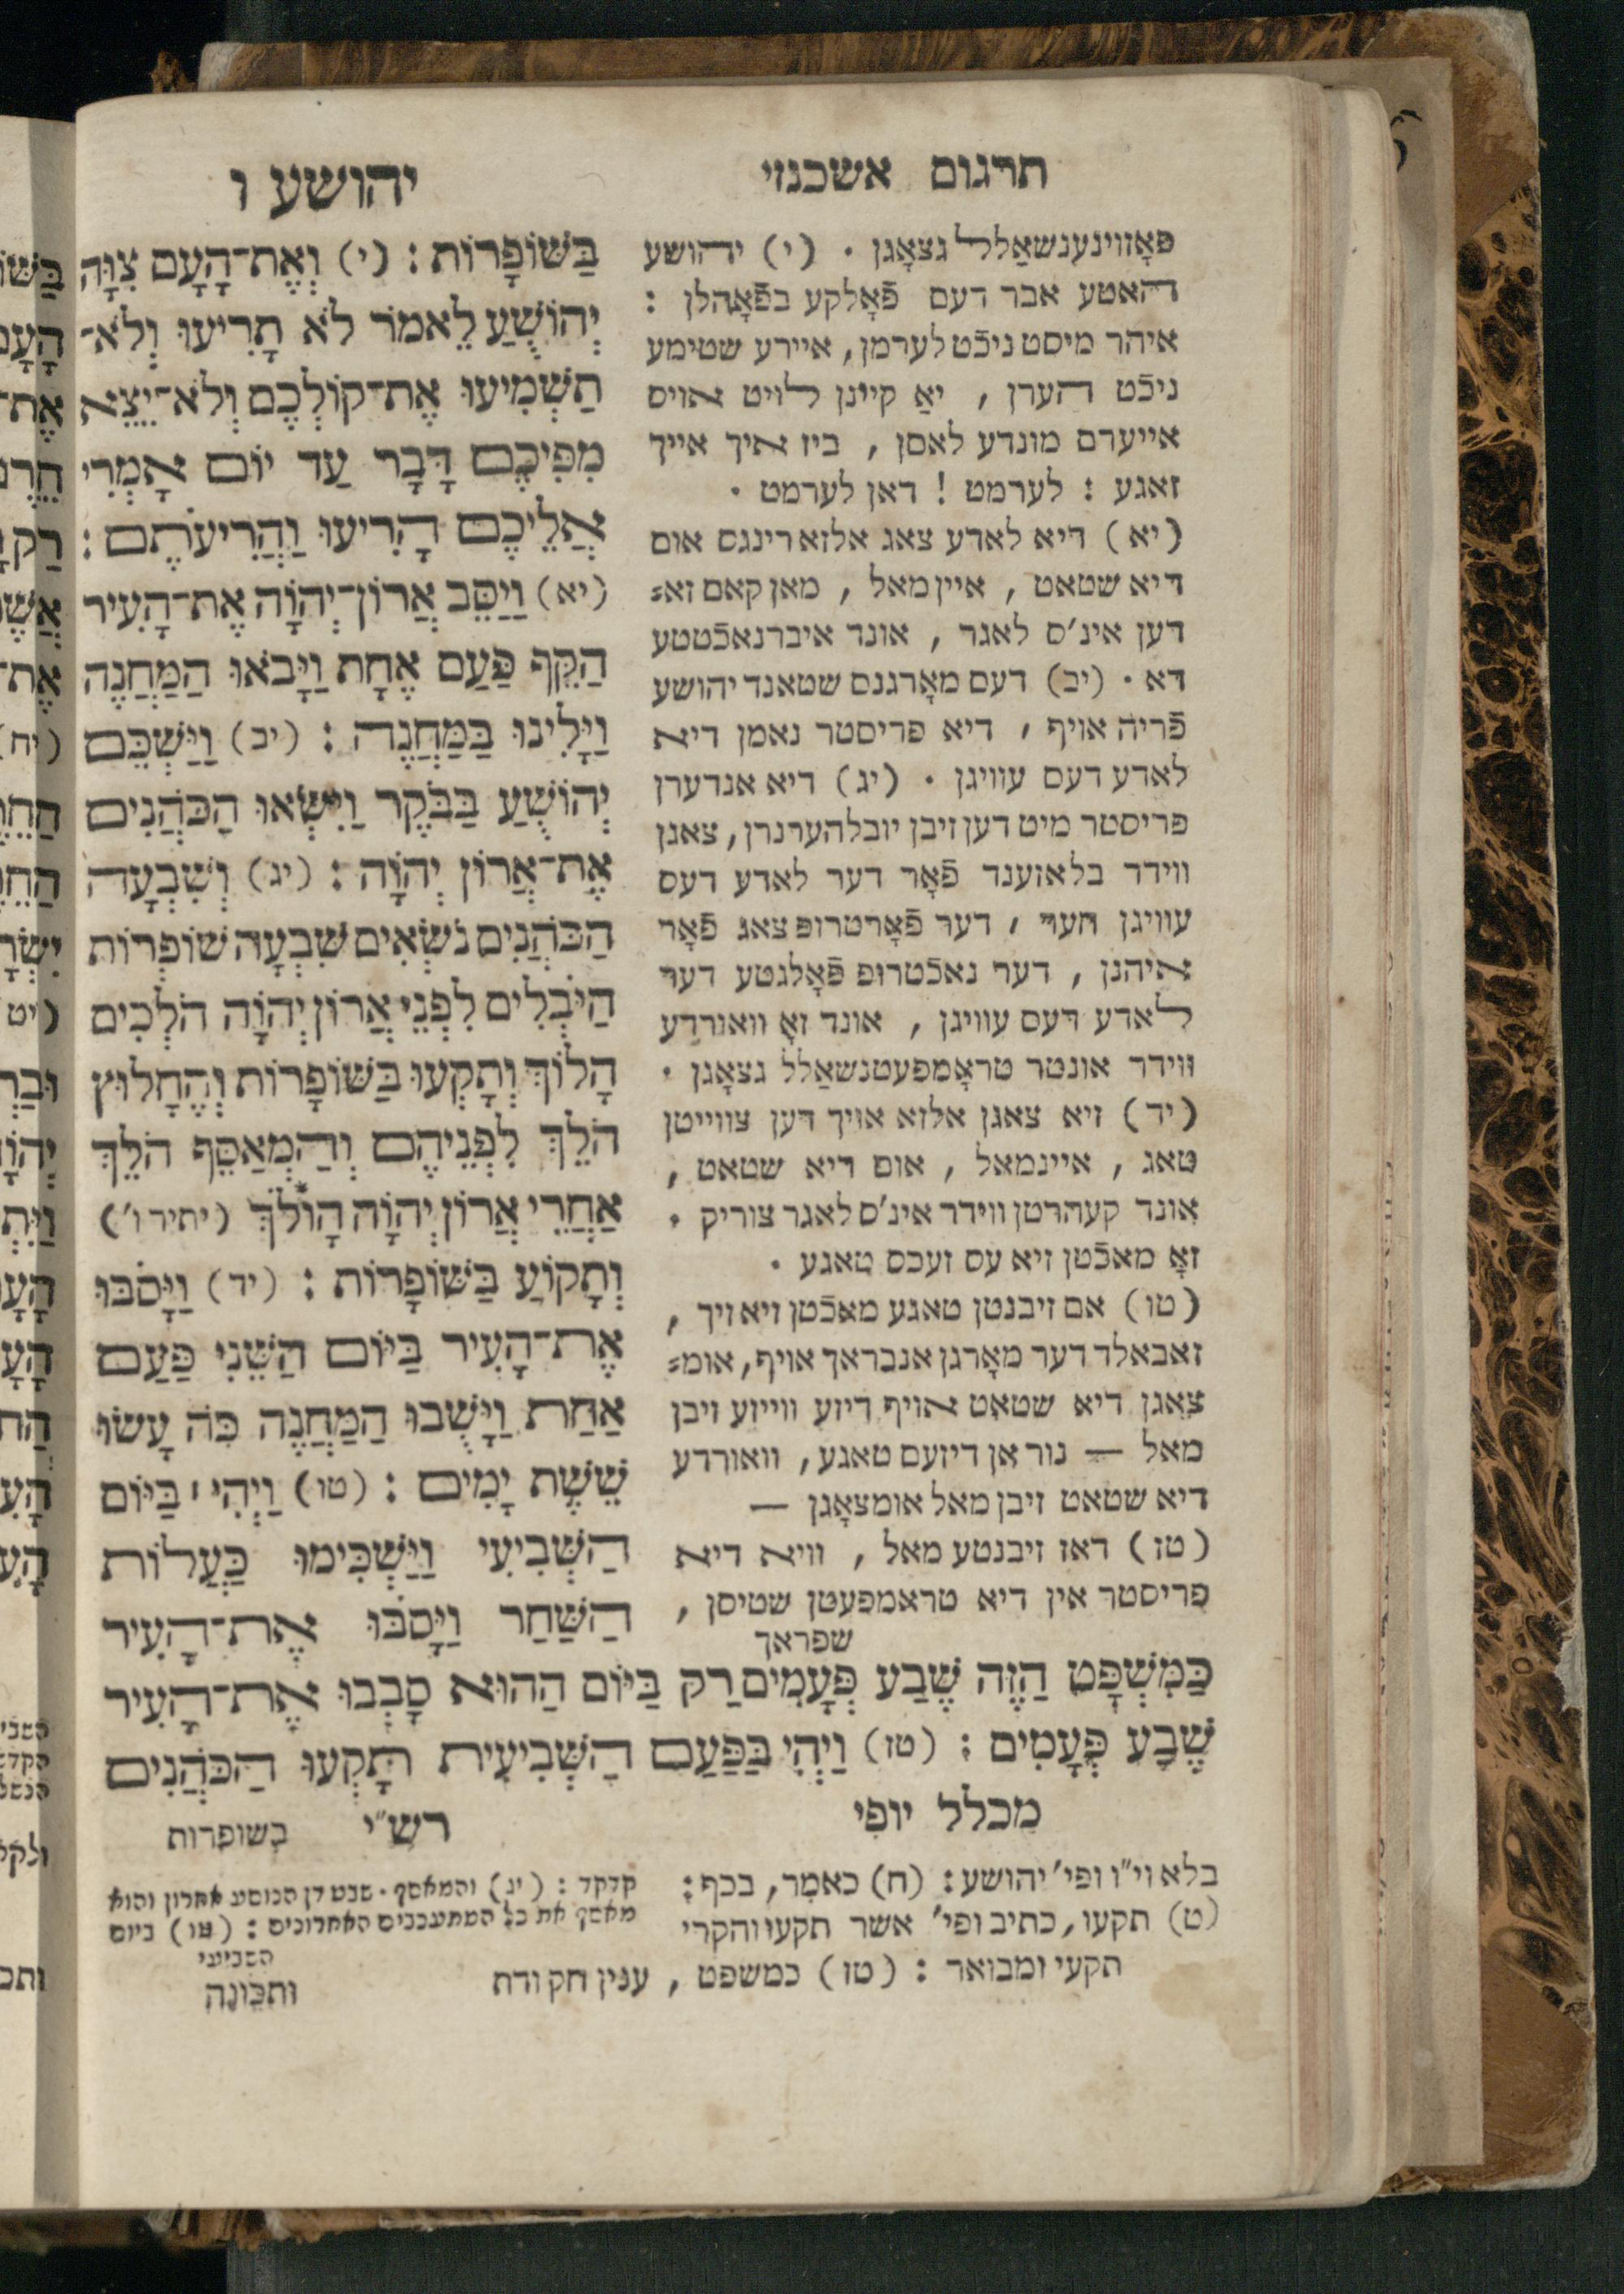 תרגום אשכנזי
יהושע ו
פאָזוינענשאַלל געצאָגן . (י) יהושע
האטע אבר דעם פֿאָלקע בפֿאָהלן :
איהר מיסט ניכֿט לערמן, איירע שטימע
ניכֿט הערן , יאַ קיינן לויט אויס
אייערם מונדע לאסן , ביז איך אייך
זאגע : לערמט ! דאן לערמט .
(יא) דיא לאדע צאג אלזא רינגס אום
דיא שטאט , איין מאל , מאן קאם זא=
דען אינ'ס לאגר , אונד איברנאכֿטטע
דא . (יב) דעם מאָרגנס שטאנד יהושע
פֿריה אויף , דיא פריסטר נאמן דיא
לאדע דעס עוויגן . (יג) דיא אנדערן
פריסטר מיט דען זיבן יובלהערנרן, צאגן
ווידר בלאזענד פֿאָר דער לאדע דעס
עוויגן הער , דער פֿאָרטרופ צאג פֿאָר
איהנן , דער נאכֿטרופ פֿאָלגטע דער
לאדע דעס עוויגן , אונד זאָ וואורדע
ווידר אונטר טראָמפעטנשאַלל געצאָגן .
(יד) זיא צאגן אלזא אויך דען צווייטן
טאג , איינמאל , אום דיא שטאט ,
אונד קעהרטן ווידר אינ'ס לאגר צוריק .
זאָ מאכֿטן זיא עס זעכס טאגע .
(טו) אם זיבנטן טאגע מאכֿטן זיא זיך ,
זאבאלד דער מאָרגן אנבראך אויף, אומ=
צאגן דיא שטאט אויף דיזע ווייזע זיבן
מאל — נור אן דיזעם טאגע, וואורדע
דיא שטאט זיבן מאל אומצאָגן —
(טז) דאז זיבנטע מאל , וויא דיא
פריסטר אין דיא טראמפעטן שטיסן ,
שפראך
בַּשּׁוֹפָרוֹת : (י) וְאֶת־הָעָם צִוָּה
יְהוֹשֻׁעַ לֵאמֹר לֹא תָרִיעוּ וְלֹא־
תַשְׁמִיעוּ אֶת־קוֹלְכֶם וְלֹא־יֵצֵא
מִפִּיכֶם דָּבָר עַד יוֹם אָמְרִי
אֲלֵיכֶם הָרִיעוּ וַהֲרִיעֹתֶם :
(יא) וַיַּסֵּב אֲרוֹן־יְהוָֹה אֶת־הָעִיר
הַקֵּף פַּעַם אֶחָת וַיָּבֹאוּ הַמַּחֲנֶה
וַיָּלִינוּ בַּמַּחֲנֶה : (יב) וַיַּשְׁכֵּם
יְהוֹשֻׁעַ בַּבֹּקֶר וַיִּשְׂאוּ הַכֹּהֲנִים
אֶת־אֲרוֹן יְהוָֹה : (יג) וְשִׁבְעָה
הַכֹּהֲנִים נֹשְׂאִים שִׁבְעָה שׁוֹפְרוֹת
הַיֹּבְלִים לִפְנֵי אֲרוֹן יְהוָֹה הֹלְכִים
הָלוֹךְ וְתָקְעוּ בַּשּׁוֹפָרוֹת וְהֶחָלוּץ
הֹלֵךְ לִפְנֵיהֶם וְהַמְאַסֵּף הֹלֵךְ
אַחֲרֵי אֲרוֹן יְהוָֹה הָוֹלֹךְ (יתיר ו')
וְתָקוֹעַ בַּשּׁוֹפָרוֹת : (יד) וַיָּסֹבּוּ
אֶת־הָעִיר בַּיּוֹם הַשֵּׁנִי פַּעַם
אַחַת וַיָּשֻׁבוּ הַמַּחֲנֶה כֹּה עָשׂוּ
שֵׁשֶׁת יָמִים : (טו) וַיְהִי ׀ בַּיּוֹם
הַשְּׁבִיעִי וַיַּשְׁכִּימוּ כַּעֲלוֹת
הַשַּׁחַר וַיָּסֹבּוּ אֶת־הָעִיר
כַּמִּשְׁפָּט הַזֶּה שֶׁבַע פְּעָמִים רַק בַּיּוֹם הַהוּא סָבְבוּ אֶת־הָעִיר
שֶׁבַע פְּעָמִים : (טז) וַיְהִי בַּפַּעַם הַשְּׁבִיעִית תָּקְעוּ הַכֹּהֲנִים
בשופרות
מכלל יופי
בלא וי"ו ופי' יהושע : (ח) כאמר, בכף :
(ט) תקעו, כתיב ופי' אשר תקעו והקרי
תקעי ומבואר : (טז) כמשפט , ענין חק ודת
ותכונה
רש"י
קדקד : (יג) והמאסף . שבט דן הנוסע אחרון והוא
מאסף את כל המתעכבים האחרונים : (טו) ביום
השביעי